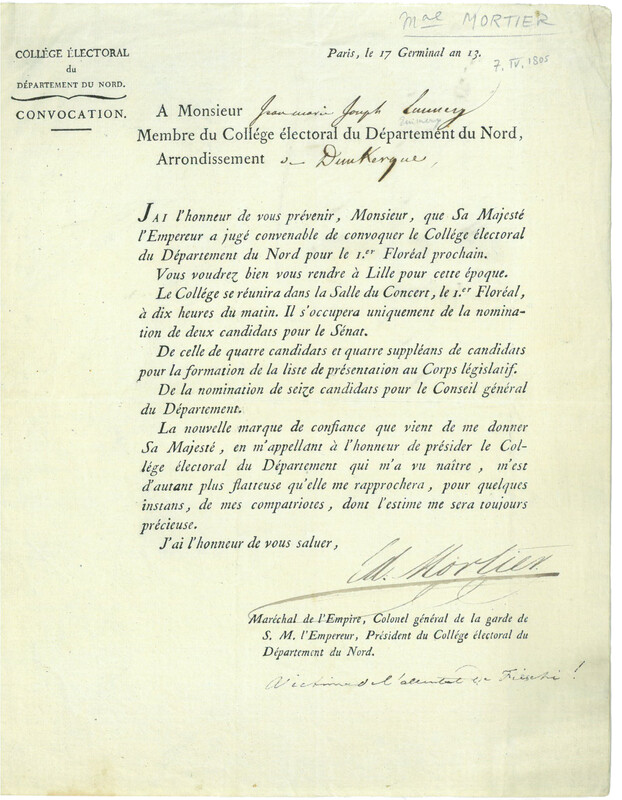 Mal MORTIER
COLLÉGE ÉLECTORAL
du
DÉPARTEMENT DU NORD.
CONVOCATION.
Paris, le 17 Germinal an 13.
7. IV. 1805
A Monsieur Jean marie Joseph
Membre du Collége électoral du Département du Nord,
Arrondissement de Dunkerque,
JAI l'honneur de vous prévenir, Monsieur, que Sa Majesté
l'Empereur a jugé convenable de convoquer le Collége électoral
du Département du Nord pour le 1.er Floréal prochain.
Vous voudrez bien vous rendre à Lille pour cette époque.
Le Collége se réunira dans la Salle du Concert, le 1.er Floréal,
à dix heures du matin. Il s'occupera uniquement de la nomina-
tion de deux candidats pour le Sénat.
De celle de quatre candidats et quatre suppléans de candidats
pour la formation de la liste de présentation au Corps législatif.
De la nomination de seize candidats pour le Conseil général
du Département.
La nouvelle marque de confiance que vient de me donner
Sa Majesté, en m'appellant à l'honneur de présider le Col-
lége électoral du Département qui m'a vu naître, m'est
d'autant plus flatteuse qu'elle me rapprochera, pour quelques
instans, de mes compatriotes, dont l'estime me sera toujours
précieuse.
J'ai l'honneur de vous saluer,
Ed. Mortier
Maréchal de l'Empire, Colonel général de la garde de
S. M. l'Empereur, Président du Collége électoral du
Département du Nord.
Victime de l'attentat de Fieschi !